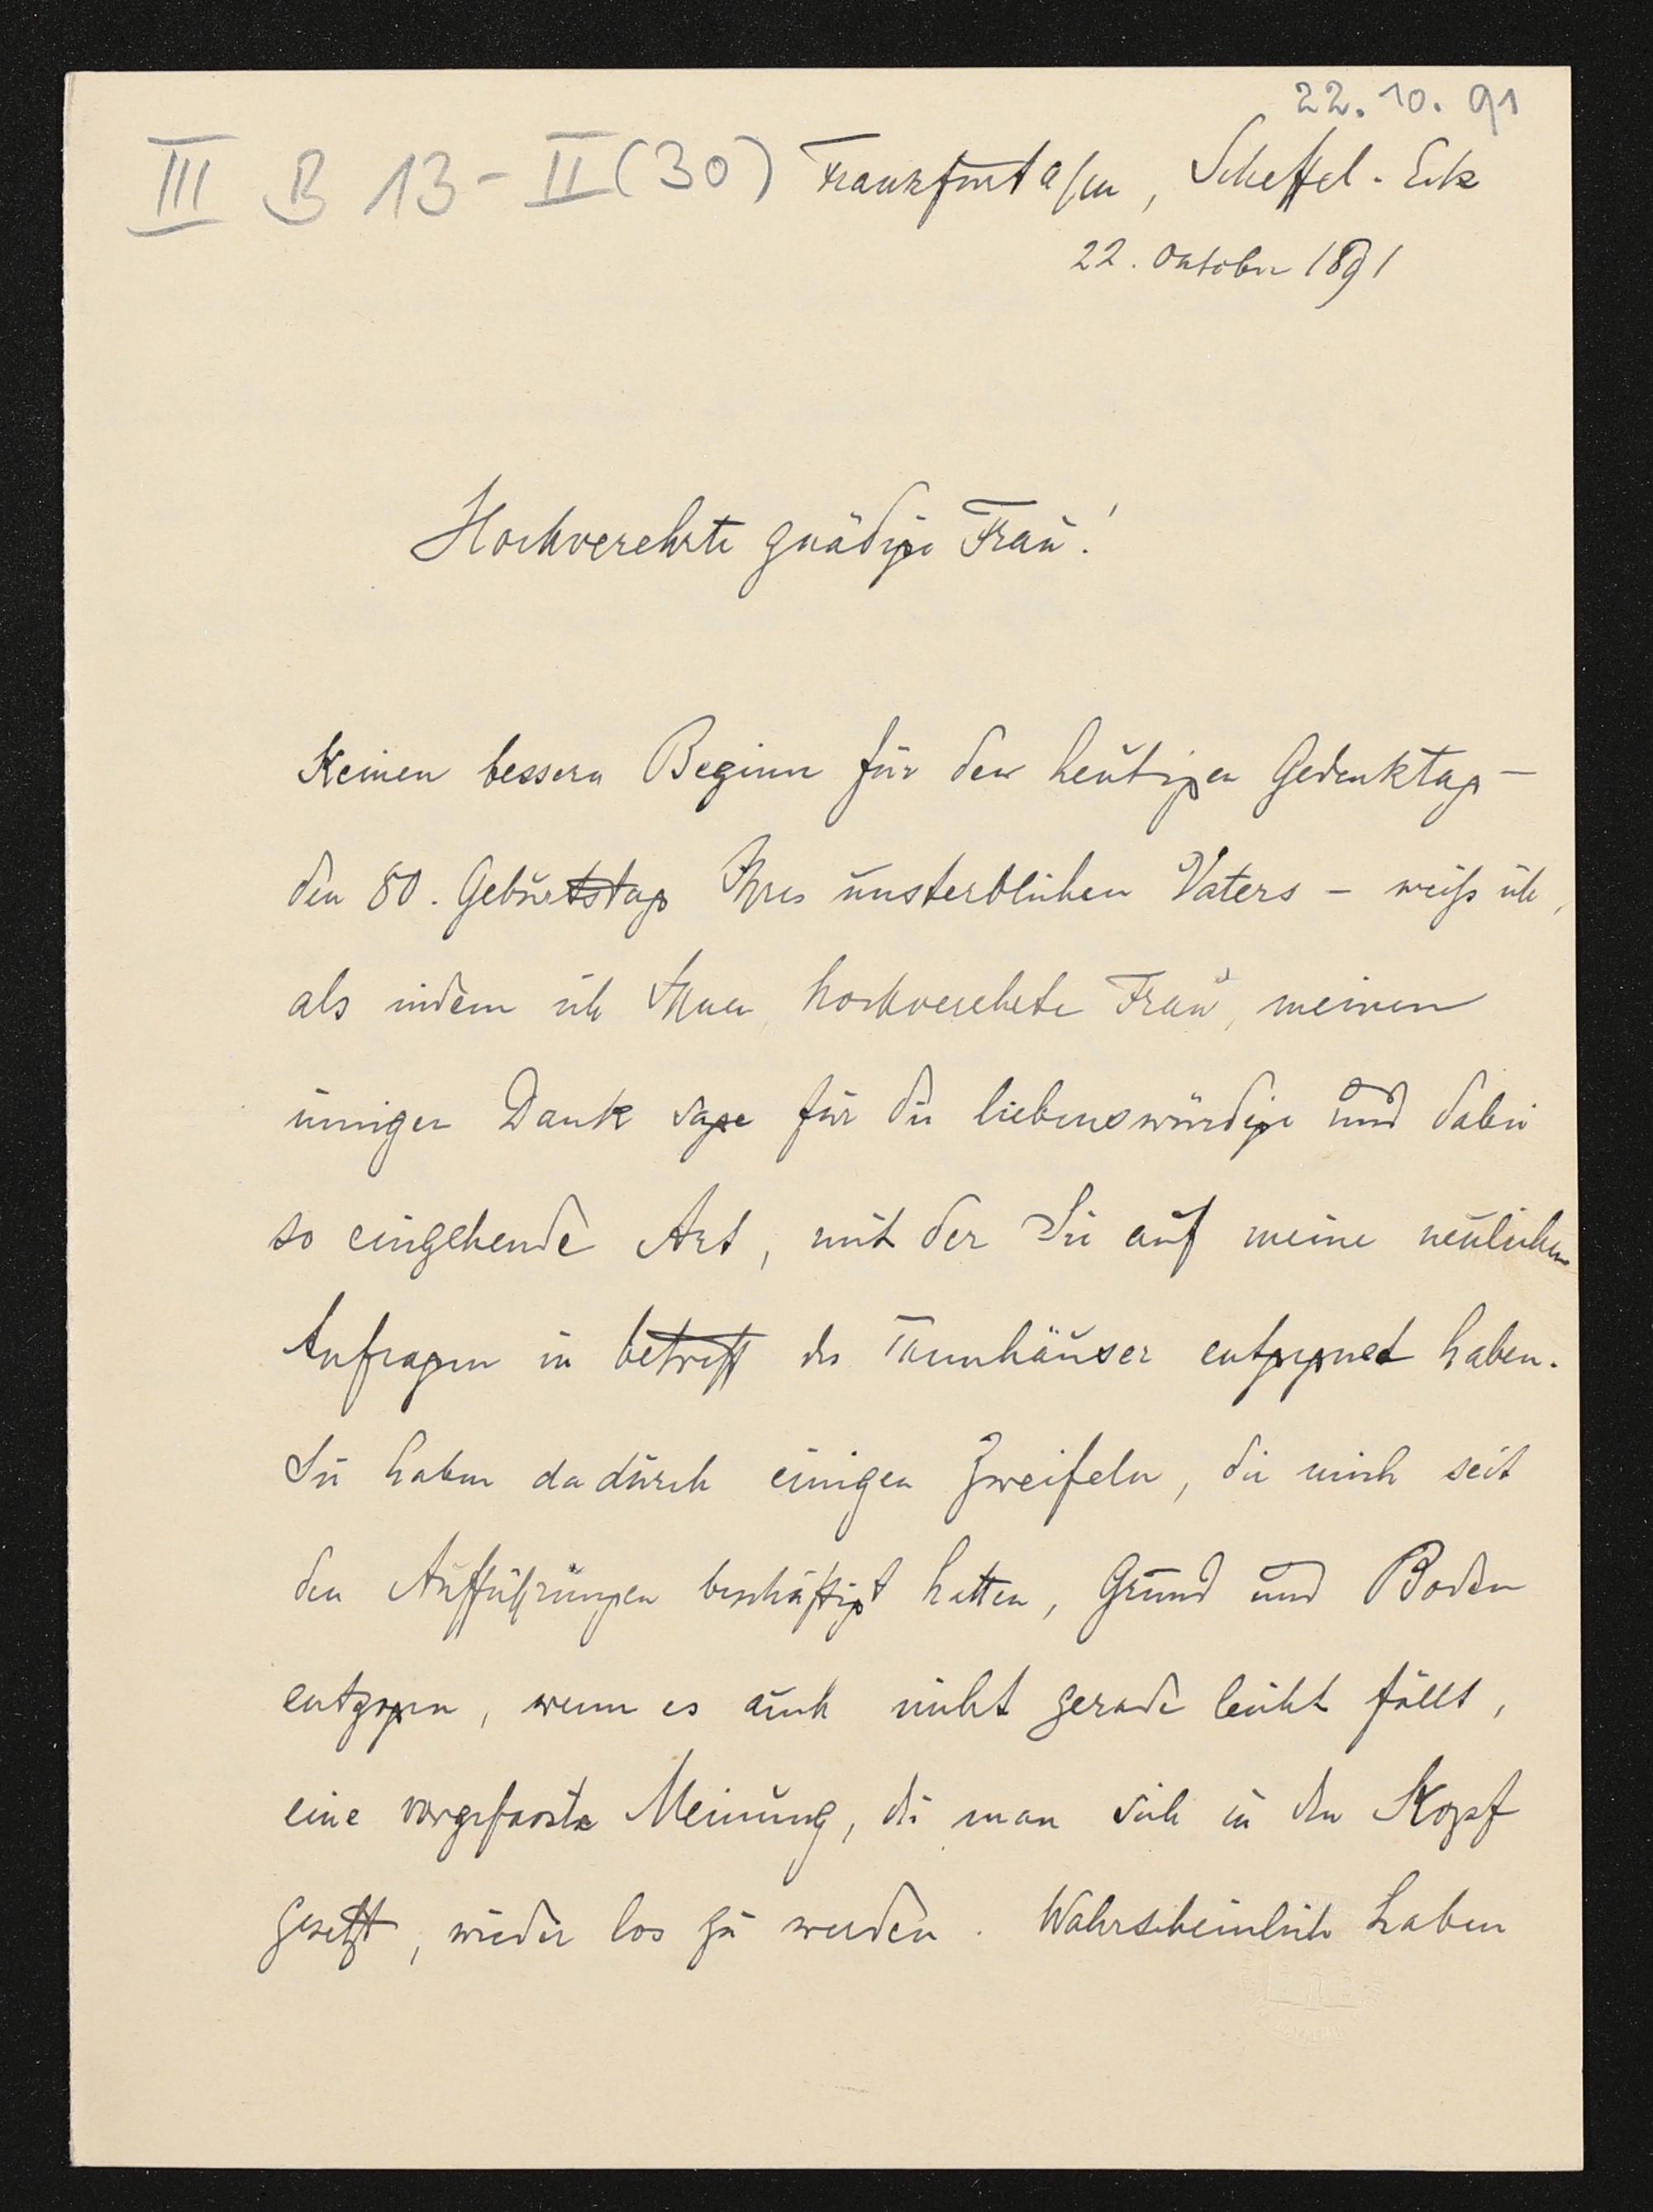 22.10.91
III B 13-II (30) Frankfurt a/m, Scheffel-Eck
22. Oktober 1891
Hochverehrte gnädige Frau!
Keinen bessern Beginn für den heutigen Gedenktag –
den 80. Geburtstag Ihres unsterblichen Vaters – weiß ich,
als indem ich Ihnen, hochverehrte Frau, meinen
innigen Dank sage für die liebenswürdige und dabei
so eingehende Art, mit der Sie auf meine neulichen
Anfragen in betreff des Tannhäuser entgegnet haben.
Sie haben dadurch einigen Zweifeln, die mich seit
den Aufführungen beschäftigt hatten, Grund und Boden
entzogen, wenn es auch nicht gerade leicht fällt,
eine vorgefasste Meinung, die man sich in den Kopf
gesetzt, wieder los zu werden. Wahrscheinlich haben